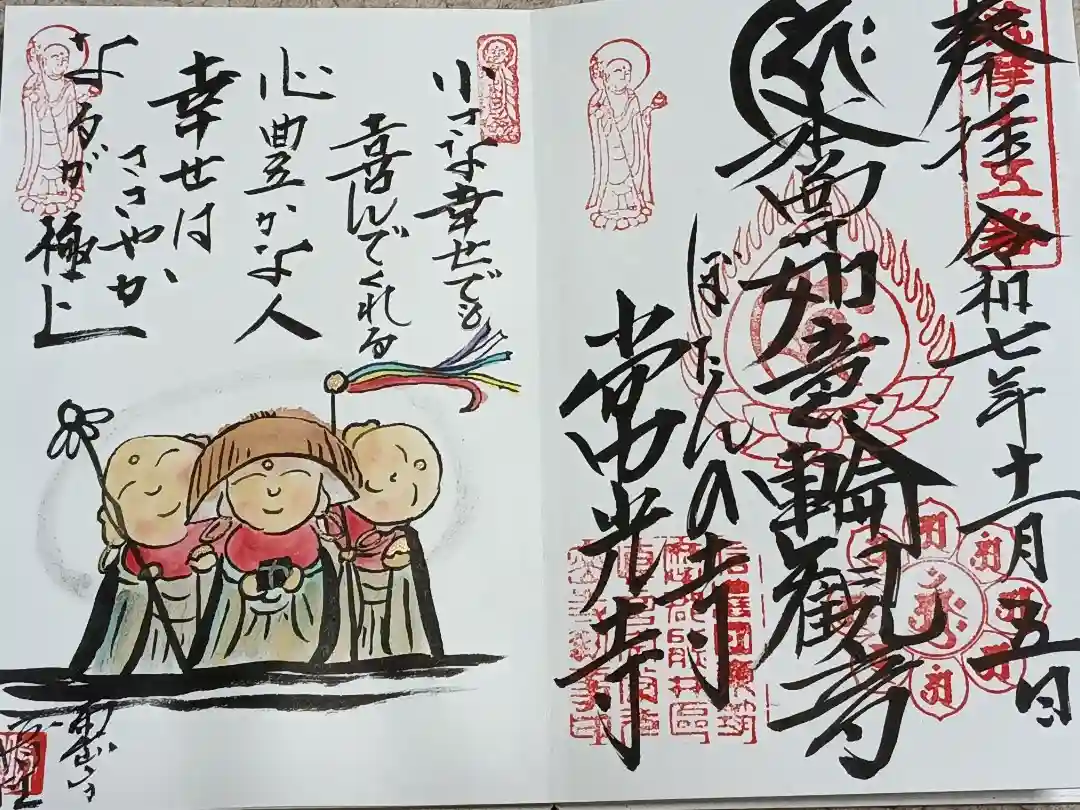 奉拝
令和七年十一月五日
本尊如意輪観音
ぼたんの寺
常光寺
小さな幸せでも
喜んでくれる
心豊かな人
幸せは
ささやか
なるが極上